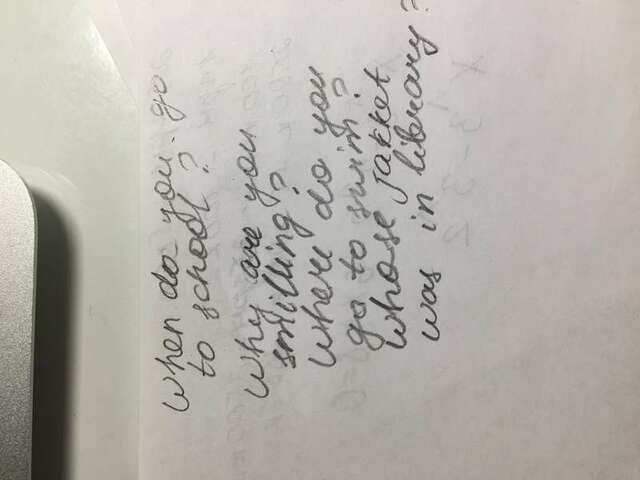 When do you go
to school?
Why are you
smilling?
Where do you
go to swim?
Whose jakket
was in library?
x 3-3 2